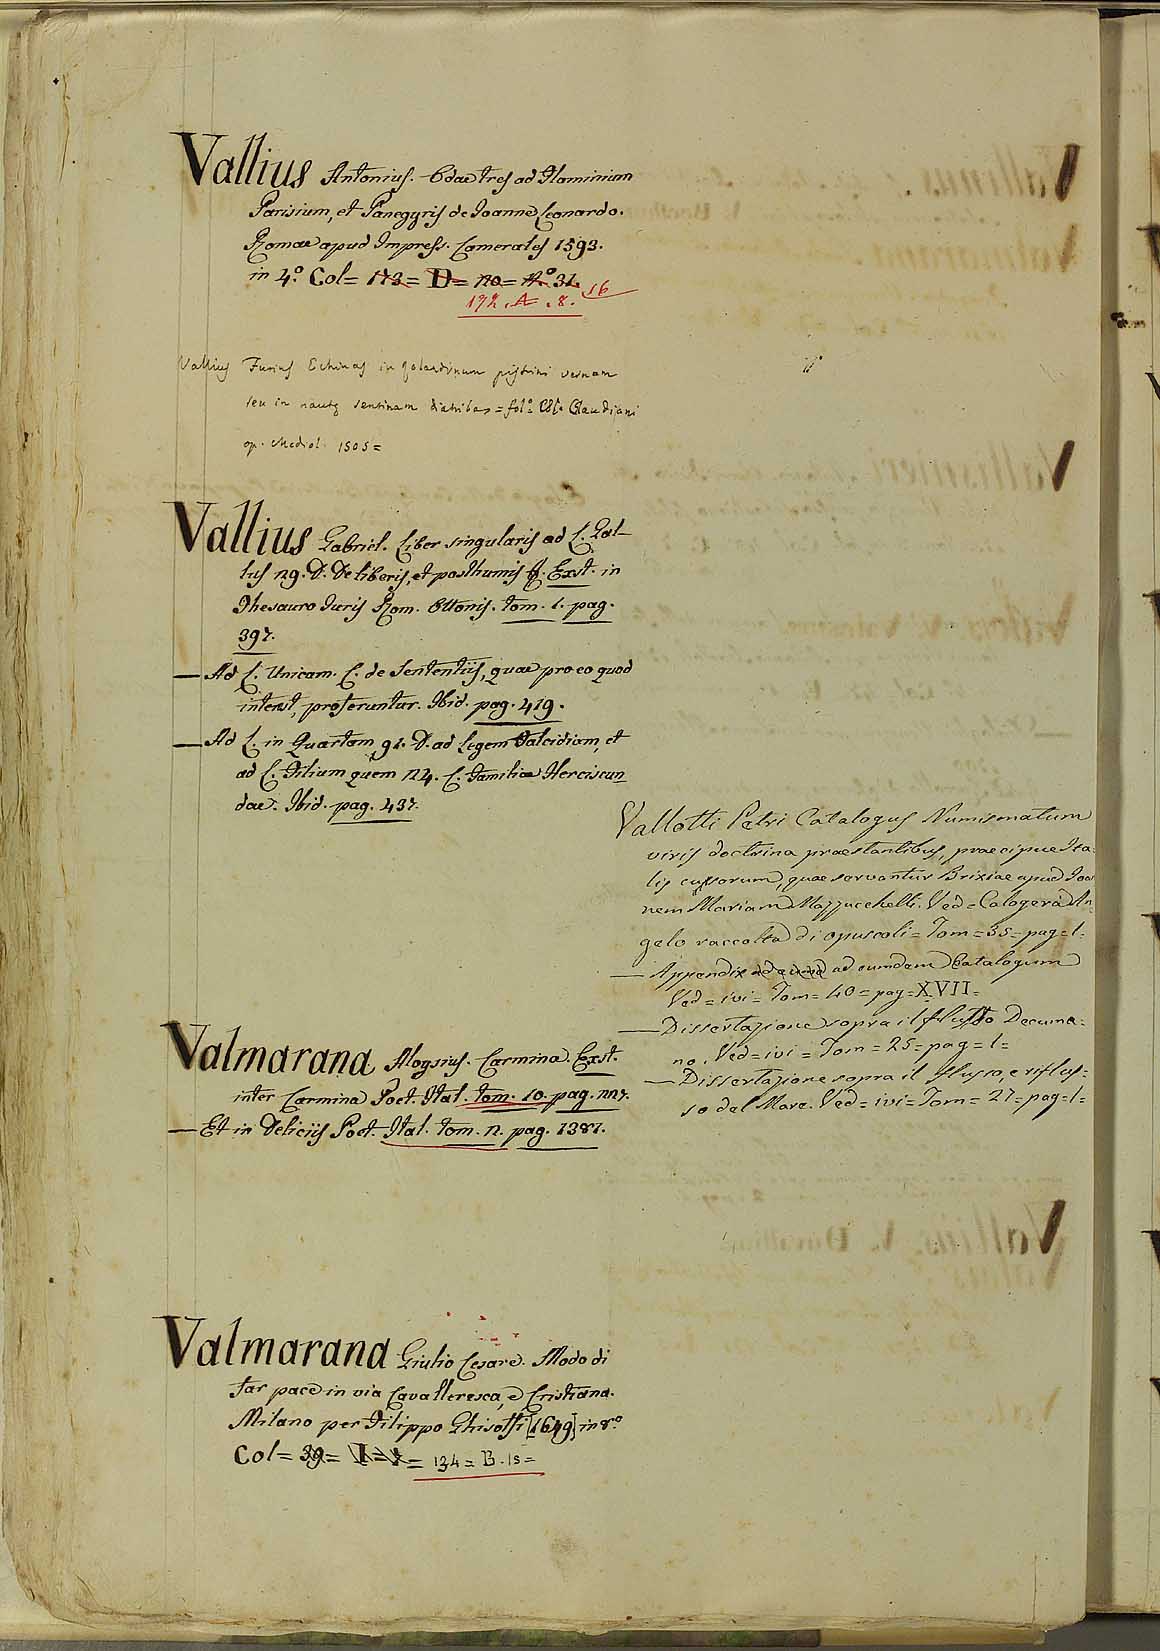 Vallius Antonius. Odae tres ad Flaminium
Parisium, et Panegyris de Ioanne Leonardo.
Romae apud Impress. Camerales 1593.
in 4.º Col= 173= D= 20= N.º 31. 16
172. A. 8.
Vallius Furius Echinas in
seu in nautę sentinam diatribas = fol.º Claudiani
op. Mediol. 1505=
Vallius Gabriel. Liber singularis ad L. Gal-
lus 29. D. De liberis, et posthumis &. Exst. in
Thesauro Iuris Rom. Ottonis. tom. 1. pag.
397.
— Ad L. Unicam. C. de Sententiis, quae pro eo quod
interest, proferuntur. Ibid. pag. 419.
— Ad L. in Quartam 91. D. ad Legem Falcidiam, et
ad L. Filium quem 24. C. Familiae Herciscun
dae. Ibid. pag. 437.
Vallotti Petri Catalogus Numismatum
viris doctrina praestantibus, praecipue Ita-
lis cussorum, quae servantur Brixiae apud Joa
nem Mariam Mazzucchelli. Ved= Calogerà An-
gelo raccolta di opuscoli= Tom= 35= pag= 1=
— Appendix ad eumdem Catalogum
Ved= ivi= Tom= 40= pag= XVII=
— Dissertazione sopra il flutto Decuma=
no. Ved= ivi= Tom= 25= pag= 1=
— Dissertazione sopra il flusso, e riflus=
so del Mare. Ved= ivi= Tom= 27= pag= 1=
Valmarana Aloysius. Carmina. Exst.
inter Carmina Poet. Ital. tom. 10. pag. 227.
— Et in Deliciis Poet. Ital. tom. 2. pag. 1387.
Valmarana Giulio Cesare. Modo di
far pace in via Cavalleresca, e Cristiana.
Milano per Filippo Ghisolfi [1649] in 8.º
Col= 39= I= = 134= B. 15=